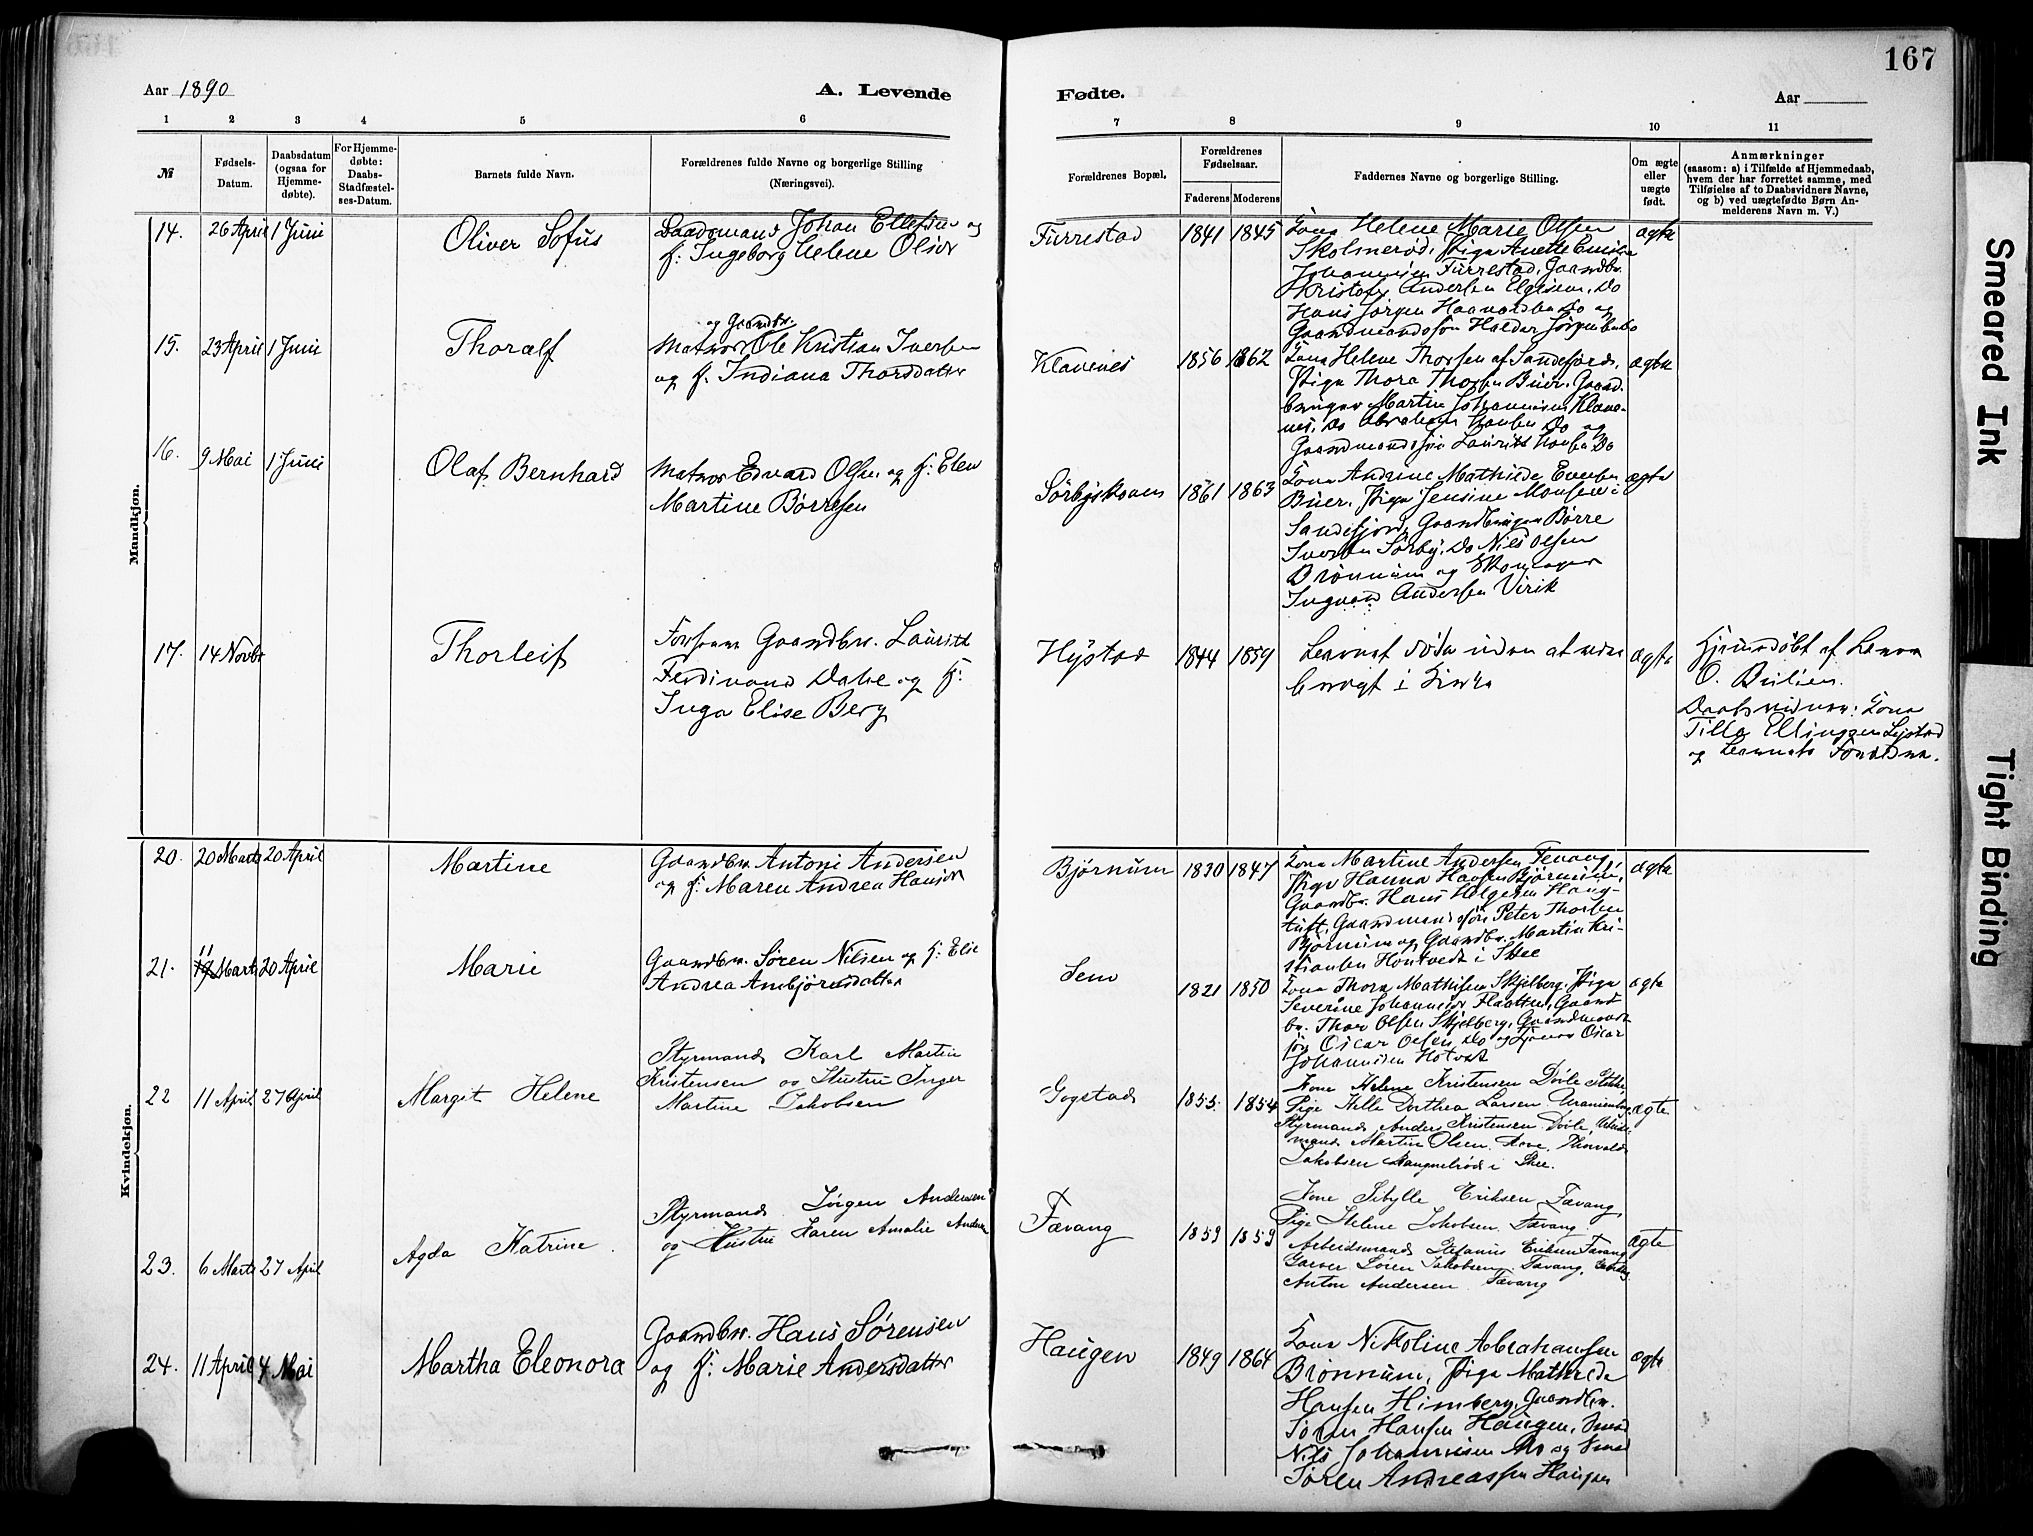 167
Aar 1890
A. Levende
Fødte.
Aar
1 2 3 4 5 6 7 8 9 10 11
№
Fødsels-
Datum.
Daabsdatum
(ogsaa for
Hjemme-
døbte).
For Hjemme-
døbte:
Daabs-
Stadfæstel-
ses-Datum.
Barnets fulde Navn.
Forældrenes fulde Navne og borgerlige Stilling
(Næringsvei).
Forældrenes Bopæl.
Forældrenes
Fødselsaar.
Faderens Moderens
Faddernes Navne og borgerlige Stilling.
Om ægte
eller
uægte
født.
Anmærkninger
(saasom: a) i Tilfælde af Hjemmedaab,
hvem der har forrettet samme, med
Tilføielse af to Daabsvidners Navne,
og b) ved uægtefødte Børn An-
melderens Navn m. V.)
Mandkjøn.
14. 26 April 1 Juni
Oliver Sofus
Johan Ellefsen og
f: Ingeborg Helene Olsdr
Furrestad
1841 1845
Kona Helene Marie Olsen
Skolmerød, Pige Anette Emilie
Johannesen Furrestad, Gaardbr.
Kristofer Andersen Elgesem, Do
Hans Jørgen Do og
Gaardmandssøn Haldor Jørgensen Do
ægte
15. 23 April 1 Juni
Thoralf
og Gaardbr.
Matros Ole Kristian Iversen
og f. Indiana Thorsdatter
Klavenes
1856 1862
Kona Helene Thorsen af Sandefjord,
Pige Thora Thorsen Buer, Gaard-
bruger Martin Johannesen Klave-
nes, Do Abraham Hansen Do og
Gaardmandssøn Laurits Hansen Do
ægte
16. 9 Mai 1 Juni
Olaf Bernhard
Matros Edvard Olsen og f: Elen
Martine Børresen
Sørbyskoven
1861 1863
Kona Andrine Mathilde Evensen
Buer, Pige Jensine Monsen i
Sandefjord, Gaardbruger Børre
Iversen Sørby, Do Nils Olsen
Brønnum og Skomager
Ingvard Andersen Virik
ægte
17. 14 Novbr
Thorleif
Forhenv. Gaardbr. Laurits
Ferdinand Dahl og f:
Inga Elise Berg
Hystad
1844 1859
Barnet døde uden at være
bragt i Kirke
ægte
Hjemdøbt af Lærer
O. Bulien.
Daabsvidner: Kona
Tilla Ellingsen Hystad
og Barnets Forældre.
Kvindekjøn.
20. 20 Marts 20 April
Martine
Gaardbr. Antoni Andersen
og f: Maren Andrea Hansdr
Bjørnum
1830 1847
Kona Martine Andersen Fevang,
Pige Hanna Hansen Bjørnum,
Gaardbr. Hans Helgesen Haug-
tuft, Gaardmandssøn Peter Thorsen
Bjørnum og Gaardbr. Martin Kri-
stiansen Hontvedt i Skee
ægte
21. 11 Marts 20 April
Marie
Gaardbr. Søren Nilsen og f: Elie
Andrea Ambjørnsdatter
Sem
1821 1850
Kona Thora Mathisen Skjelberg, Pige
Severine Johannesdr Flaatten, Gaard-
br. Thor Olsen Skjelberg, Gaardmands-
søn Oscar Olsen Do og Oscar
Johannesen Hotvedt
ægte
22 11 April 27 April
Margit Helene
Styrmand Karl Martin
Kristensen og Hustru Inger
Martine Jakobsen
Gogstad
1855. 1854
Kone Helene Kristensen Døvle Stokke,
Pige Helle Dorthea Larsen Uranienborg,
Styrmand Anders Kristensen Døvle, Arbeids-
mand Martin Olsen Thorvald
Jakobsen i Skee.
ægte
23. 6 Marts 27 April
Agda Katrine
Styrmand Jørgen Andersen
og Hustru Karen Amalie Andersen
Fævang
1859 1859
Kone Sibylle Eriksen Fævang,
Pige Helene Jakobsen Fævang.
Arbeidsmand Stefanus Eriksen Fævang
Garver Søren Jakobsen Fævang,
Anton Andersen Fævang
ægte
24. 11 April 4 Mai
Martha Eleonora
Gaardbr. Hans Sørensen
og f: Marie Andersdatter
Haugen
1849 1864
Kona Nikoline Abrahamsen
Brønnum, Pige Mathilde
Hansen Himberg, Gaardbr.
Søren Hansen Haugen,
Nils Johannesen Mo og
Søren Andreassen Haugen
ægte
Smeared Ink
Tight Binding